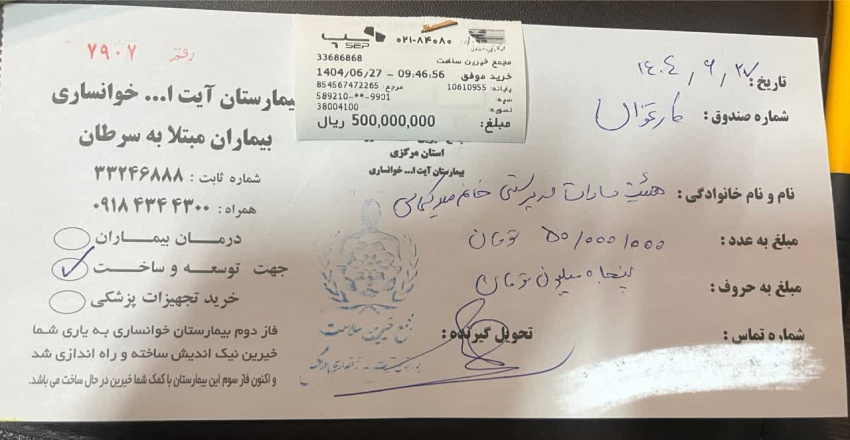 رقم ۷۹۰۷
بیمارستان آیت ا... خوانساری
بیماران مبتلا به سرطان
شماره ثابت : ۳۳۲۴۶۸۸۸
همراه : ۰۹۱۸ ۴۳۴ ۴۳۰۰
درمان بیماران
جهت توسعه و ساخت
خرید تجهیزات پزشکی
فاز دوم بیمارستان خوانساری به یاری شما
خیرین نیک اندیش ساخته و راه اندازی شد
و اکنون فاز سوم این بیمارستان با کمک شما خیرین در حال ساخت می باشد.
سپ
SEP
۰۲۱-۸۴۰۸۰
مجمع خیرین سلامت
33686868
1404/06/27 – 09:46:56
خرید موفق
پایانه: 10610955
مرجع: 854567472265
589210-**-9901
38004100
مبلغ: 500,000,000 ریال
استان مرکزی
بیمارستان آیت ا... خوانساری
تاریخ : ۱۴۰۴/۶/۲۷
شماره صندوق : کارتخوان
نام و نام خانوادگی : هئیت سادات به سرپرستی خانم
مبلغ به عدد : ۵۰/۰۰۰/۰۰۰ تومان
مبلغ به حروف : پنجاه میلیون تومان
شماره تماس :
تحویل گیرنده :
مجمع خیرین سلامت